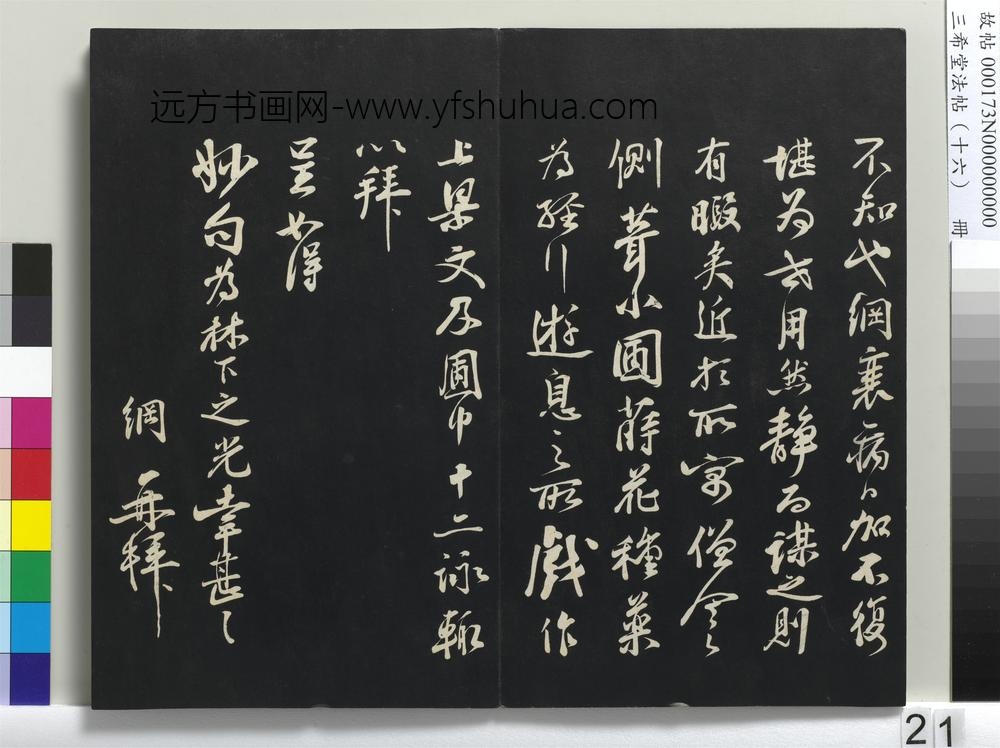 不知也綱衰病日加不復
堪為世用然静而謀之則
有暇矣近於所寓僧舍之
側葺小圃蒔花種藥
為經行遊息之所戲作
上梁文及圃中十二詠輒
以拜
呈如得
妙句為林下之光幸甚々
綱 再拜
远方书画网-www.yfshuhua.com
故帖 000173N000000000
三希堂法帖（十六） 冊
21